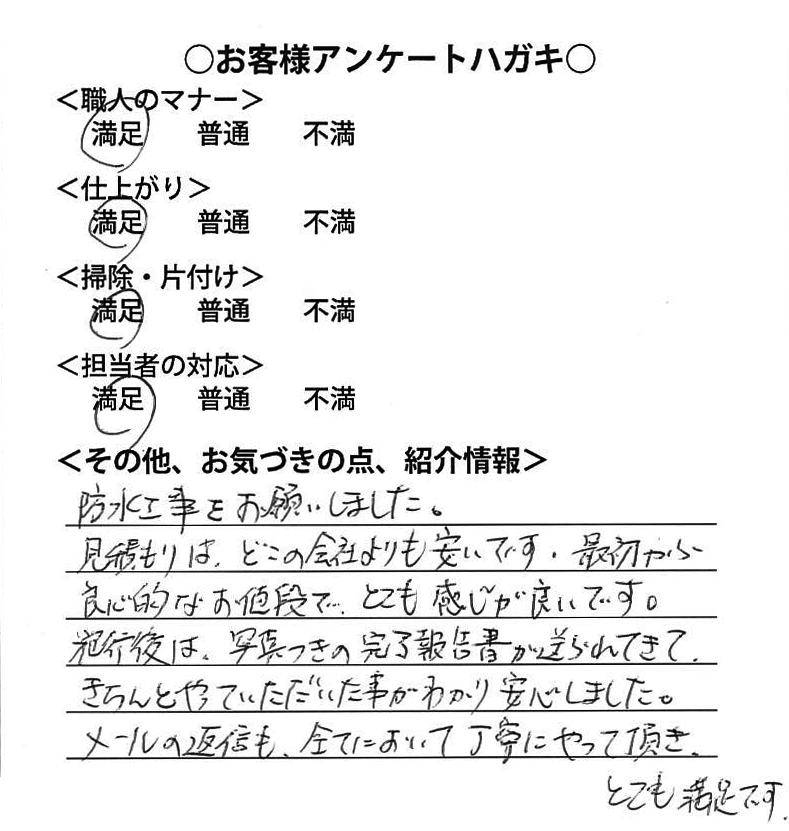 ○お客様アンケートハガキ○
＜職人のマナー＞
満足 普通 不満
＜仕上がり＞
満足 普通 不満
＜掃除・片付け＞
満足 普通 不満
＜担当者の対応＞
満足 普通 不満
＜その他、お気づきの点、紹介情報＞
防水工事をお願いしました。
見積もりは、どこの会社よりも安いです。最初から
良心的なお値段で、とても感じが良いです。
施行後は、写真つきの完了報告書が送られてきて、
きちんとやっていただいた事がわかり安心しました。
メールの返信も、全てにおいて丁寧にやって頂き、
とても満足です。